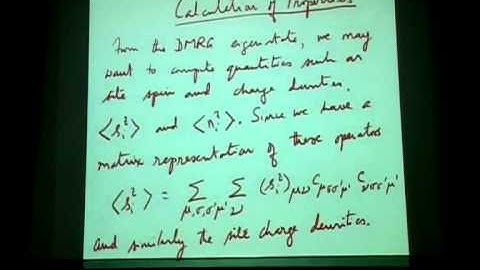 Calculation of Properties
From the DMRG eigenstate, we may
want to compute quantities such as
site spin and charge densities.
⟨s_i^2⟩ and ⟨n_i^2⟩. Since we have a
matrix representation of these operators
⟨s_i^2⟩ = ∑_{μ,σ,σ'μ'} ∑_ν (s_i^2)_{μν} C_{μσσ'μ'} C_{νσσ'μ'}
and similarly the site charge densities.